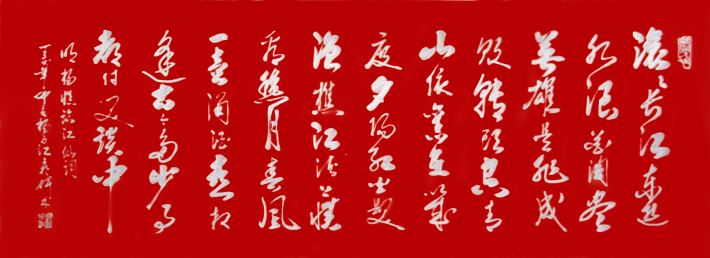 滚滚长江东逝
水浪花淘尽
英雄是非成
败转头空青
山依旧在几
度夕阳红白发
渔樵江渚上惯
看秋月春风
一壶浊酒喜相
逢古今多少事
都付笑谈中
明杨慎临江仙词